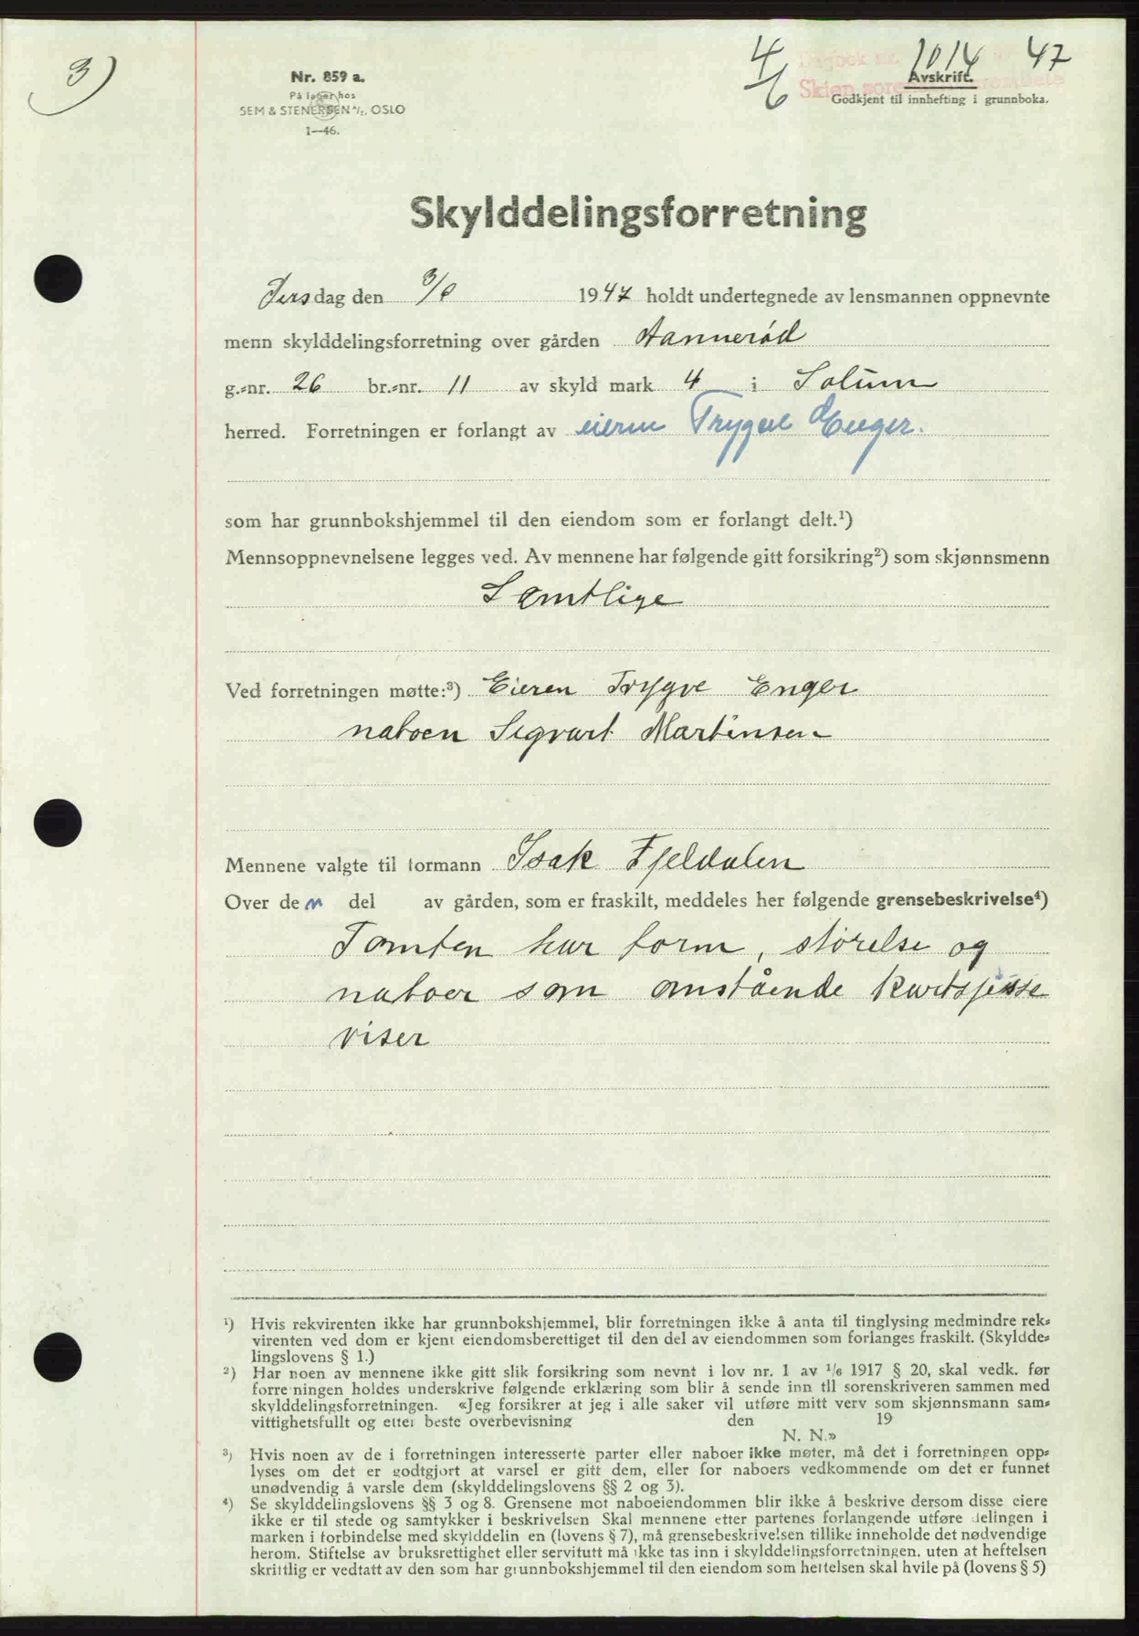 3)
Nr. 859 a.
På lager hos
SEM & STENERSEN A/S, OSLO
1—46.
4/6 Dagbok nr. 1014 47
Avskrift.
Skien sorenskriverembete
Godkjent til innhefting i grunnboka.
Skylddelingsforretning
Tirsdag den 3/6 1947 holdt undertegnede av lensmannen oppnevnte
menn skylddelingsforretning over gården Aannerød
g.-nr. 26 br.-nr. 11 av skyld mark 4 i Solum
herred. Forretningen er forlangt av eieren Trygve Enger.
som har grunnbokshjemmel til den eiendom som er forlangt delt.¹)
Mennsoppnevnelsene legges ved. Av mennene har følgende gitt forsikring²) som skjønnsmenn
Samtlige
Ved forretningen møtte:³) Eieren Trygve Enger
naboen Sigvart Martinsen
Mennene valgte til formann Isak Fjeldalen
Over den del av gården, som er fraskilt, meddeles her følgende grensebeskrivelse⁴)
Tomten har form, størelse og
naboer som omstående kartskisse
viser
¹) Hvis rekvirenten ikke har grunnbokshjemmel, blir forretningen ikke å anta til tinglysing medmindre rek-
virenten ved dom er kjent eiendomsberettiget til den del av eiendommen som forlanges fraskilt. (Skyldde-
lingslovens § 1.)
²) Har noen av mennene ikke gitt slik forsikring som nevnt i lov nr. 1 av 1/6 1917 § 20, skal vedk. før
forretningen holdes underskrive følgende erklæring som blir å sende inn til sorenskriveren sammen med
skylddelingsforretningen. «Jeg forsikrer at jeg i alle saker vil utføre mitt verv som skjønnsmann sam-
vittighetsfullt og etter beste overbevisning den 19
N. N.»
³) Hvis noen av de i forretningen interesserte parter eller naboer ikke møter, må det i forretningen opp-
lyses om det er godtgjort at varsel er gitt dem, eller for naboers vedkommende om det er funnet
unødvendig å varsle dem (skylddelingslovens §§ 2 og 3).
⁴) Se skylddelingslovens §§ 3 og 8. Grensene mot naboeiendommen blir ikke å beskrive dersom disse eiere
ikke er til stede og samtykker i beskrivelsen Skal mennene etter partenes forlangende utføre delingen i
marken i forbindelse med skylddelingen (lovens § 7), må grensebeskrivelsen tillike inneholde det nødvendige
herom. Stiftelse av bruksrettighet eller servitutt må ikke tas inn i skylddelingsforretningen, uten at heftelsen
skriftlig er vedtatt av den som har grunnbokshjemmel til den eiendom som heftelsen skal hvile på (lovens § 5)